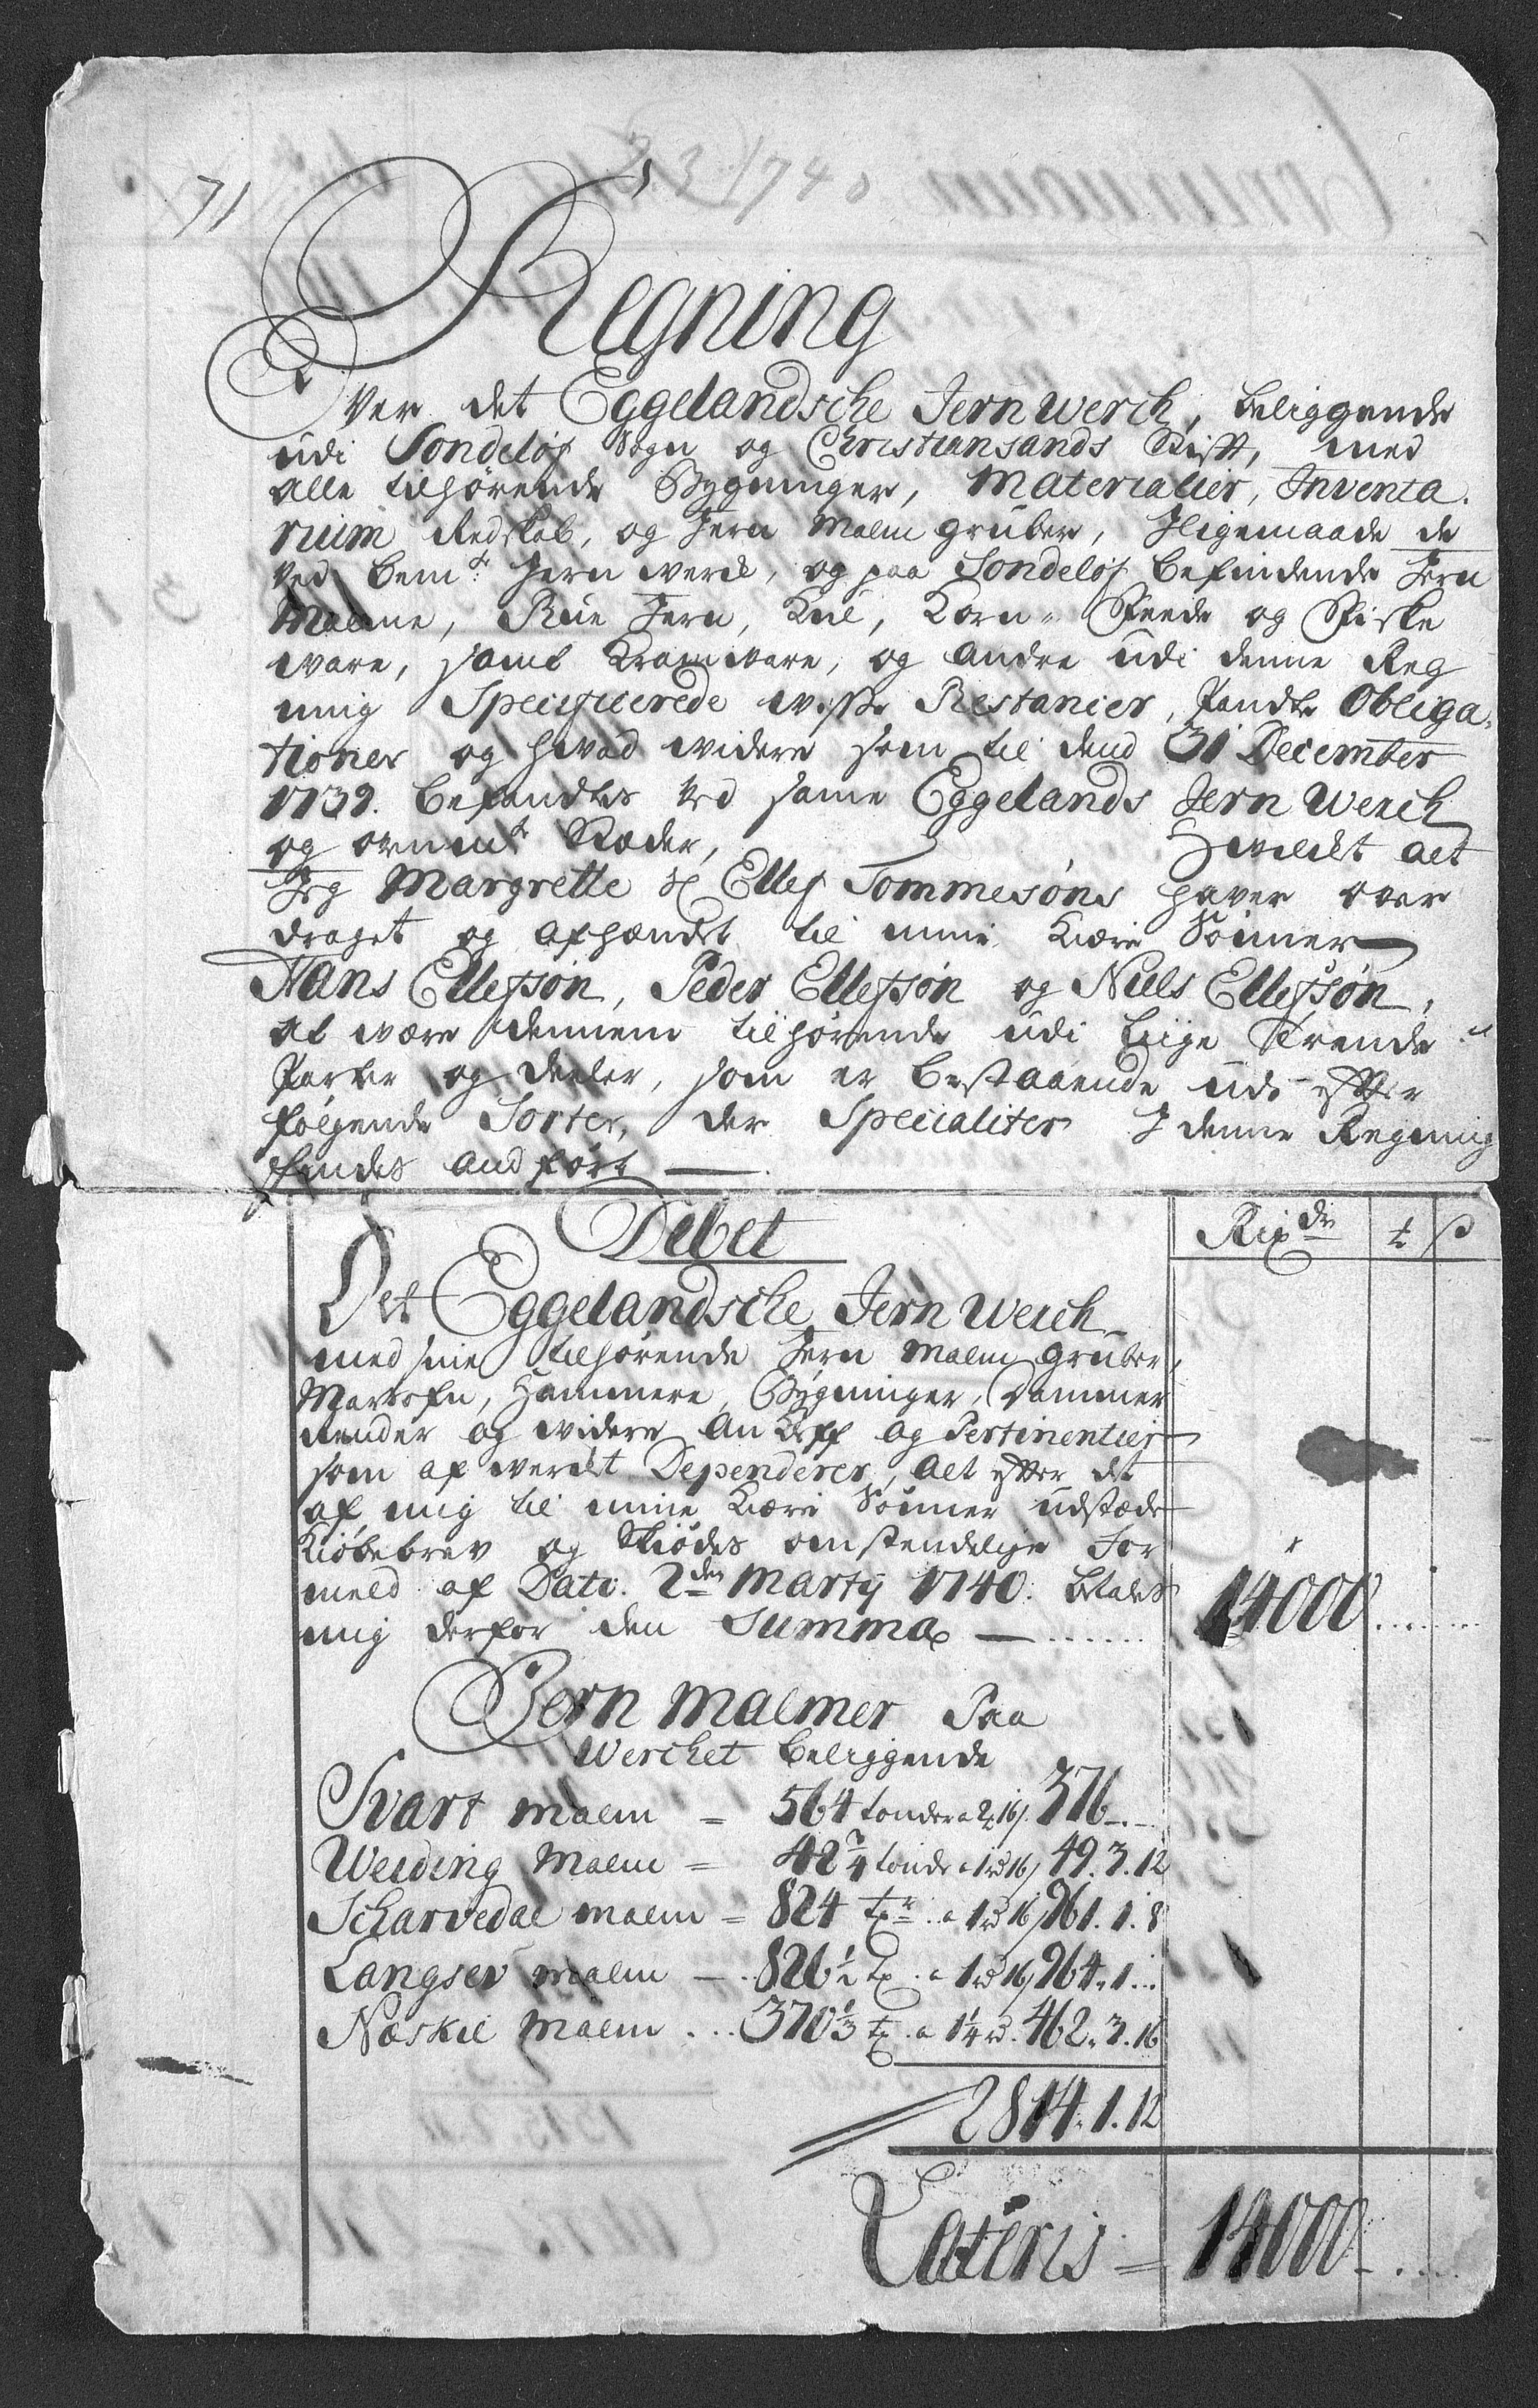 71
2/3 1740
Regning
Over det Eggelandsche Jern Werch, beliggende
udi Sondeløf Sogn og Christiansands Stift, med
alle tilhørende Bygninger, Materialier, Inventa-
rium Redskab, og Jern Malm gruber, Iligemaade de
ved bemte Jern werch, og paa Sondeløf befindende Jern
Malme, Rue Jern, Kul, Korn- Feede og Fiske
ware, samt Kramware, og andre udi denne Reg
ning Specificerede wisse Restancier, Pandte Obliga-
tioner og hwad widere som til dend 31 December
1739. befandtes ved samme Eggelands Jern Werch
og ommte Stæder, Hwilcket alt
Jeg Margrette Sl Ellef Tommesøns hawer ower
draget og afhændet til mine Kiære Sønner
Hans Ellefsøn, Peder Ellefsøn og Niels Ellefsøn,
at være dennem tilhørende udi Liige Trende
Parter og deeler, som er bestaaende udi effter
følgende Sorter, der Specialiter I denne Regning
findes andført
Debet
Rixdr t ß
Det Eggelandsche Jern Werch
med sine tilhørende Jern Malm gruber,
Masofn, Hammere, Bygninger, Dammer
Render og widere an Kleff og Pertinentier
som af werchet Dependerer, alt effter det
af mig til mine Kiære Sønner udstæde
Kiøbebrev og Skiødes omstendelige For
meld af Dato. 2den Marty 1740. betales
mig derfor den Summa — ...... 14000 ......
Jern Malmer Paa
Werchet beliggende
Svart malm = 564 tonder a 2t 16ß 376.-.-
Weiding Malm = 42 3/4 tonde a 1rd 16ß 49.3.12
Scharvedal malm = 824 tr a 1rd 16ß 961.1.8
Langsev malm — 826 1/2 t a 1rd 16ß 964.1...
Næskil Malm ... 370 1/3 t a 1 1/4 rd. 462.3.16
2814.1.12
Lateris = 14000 - ....